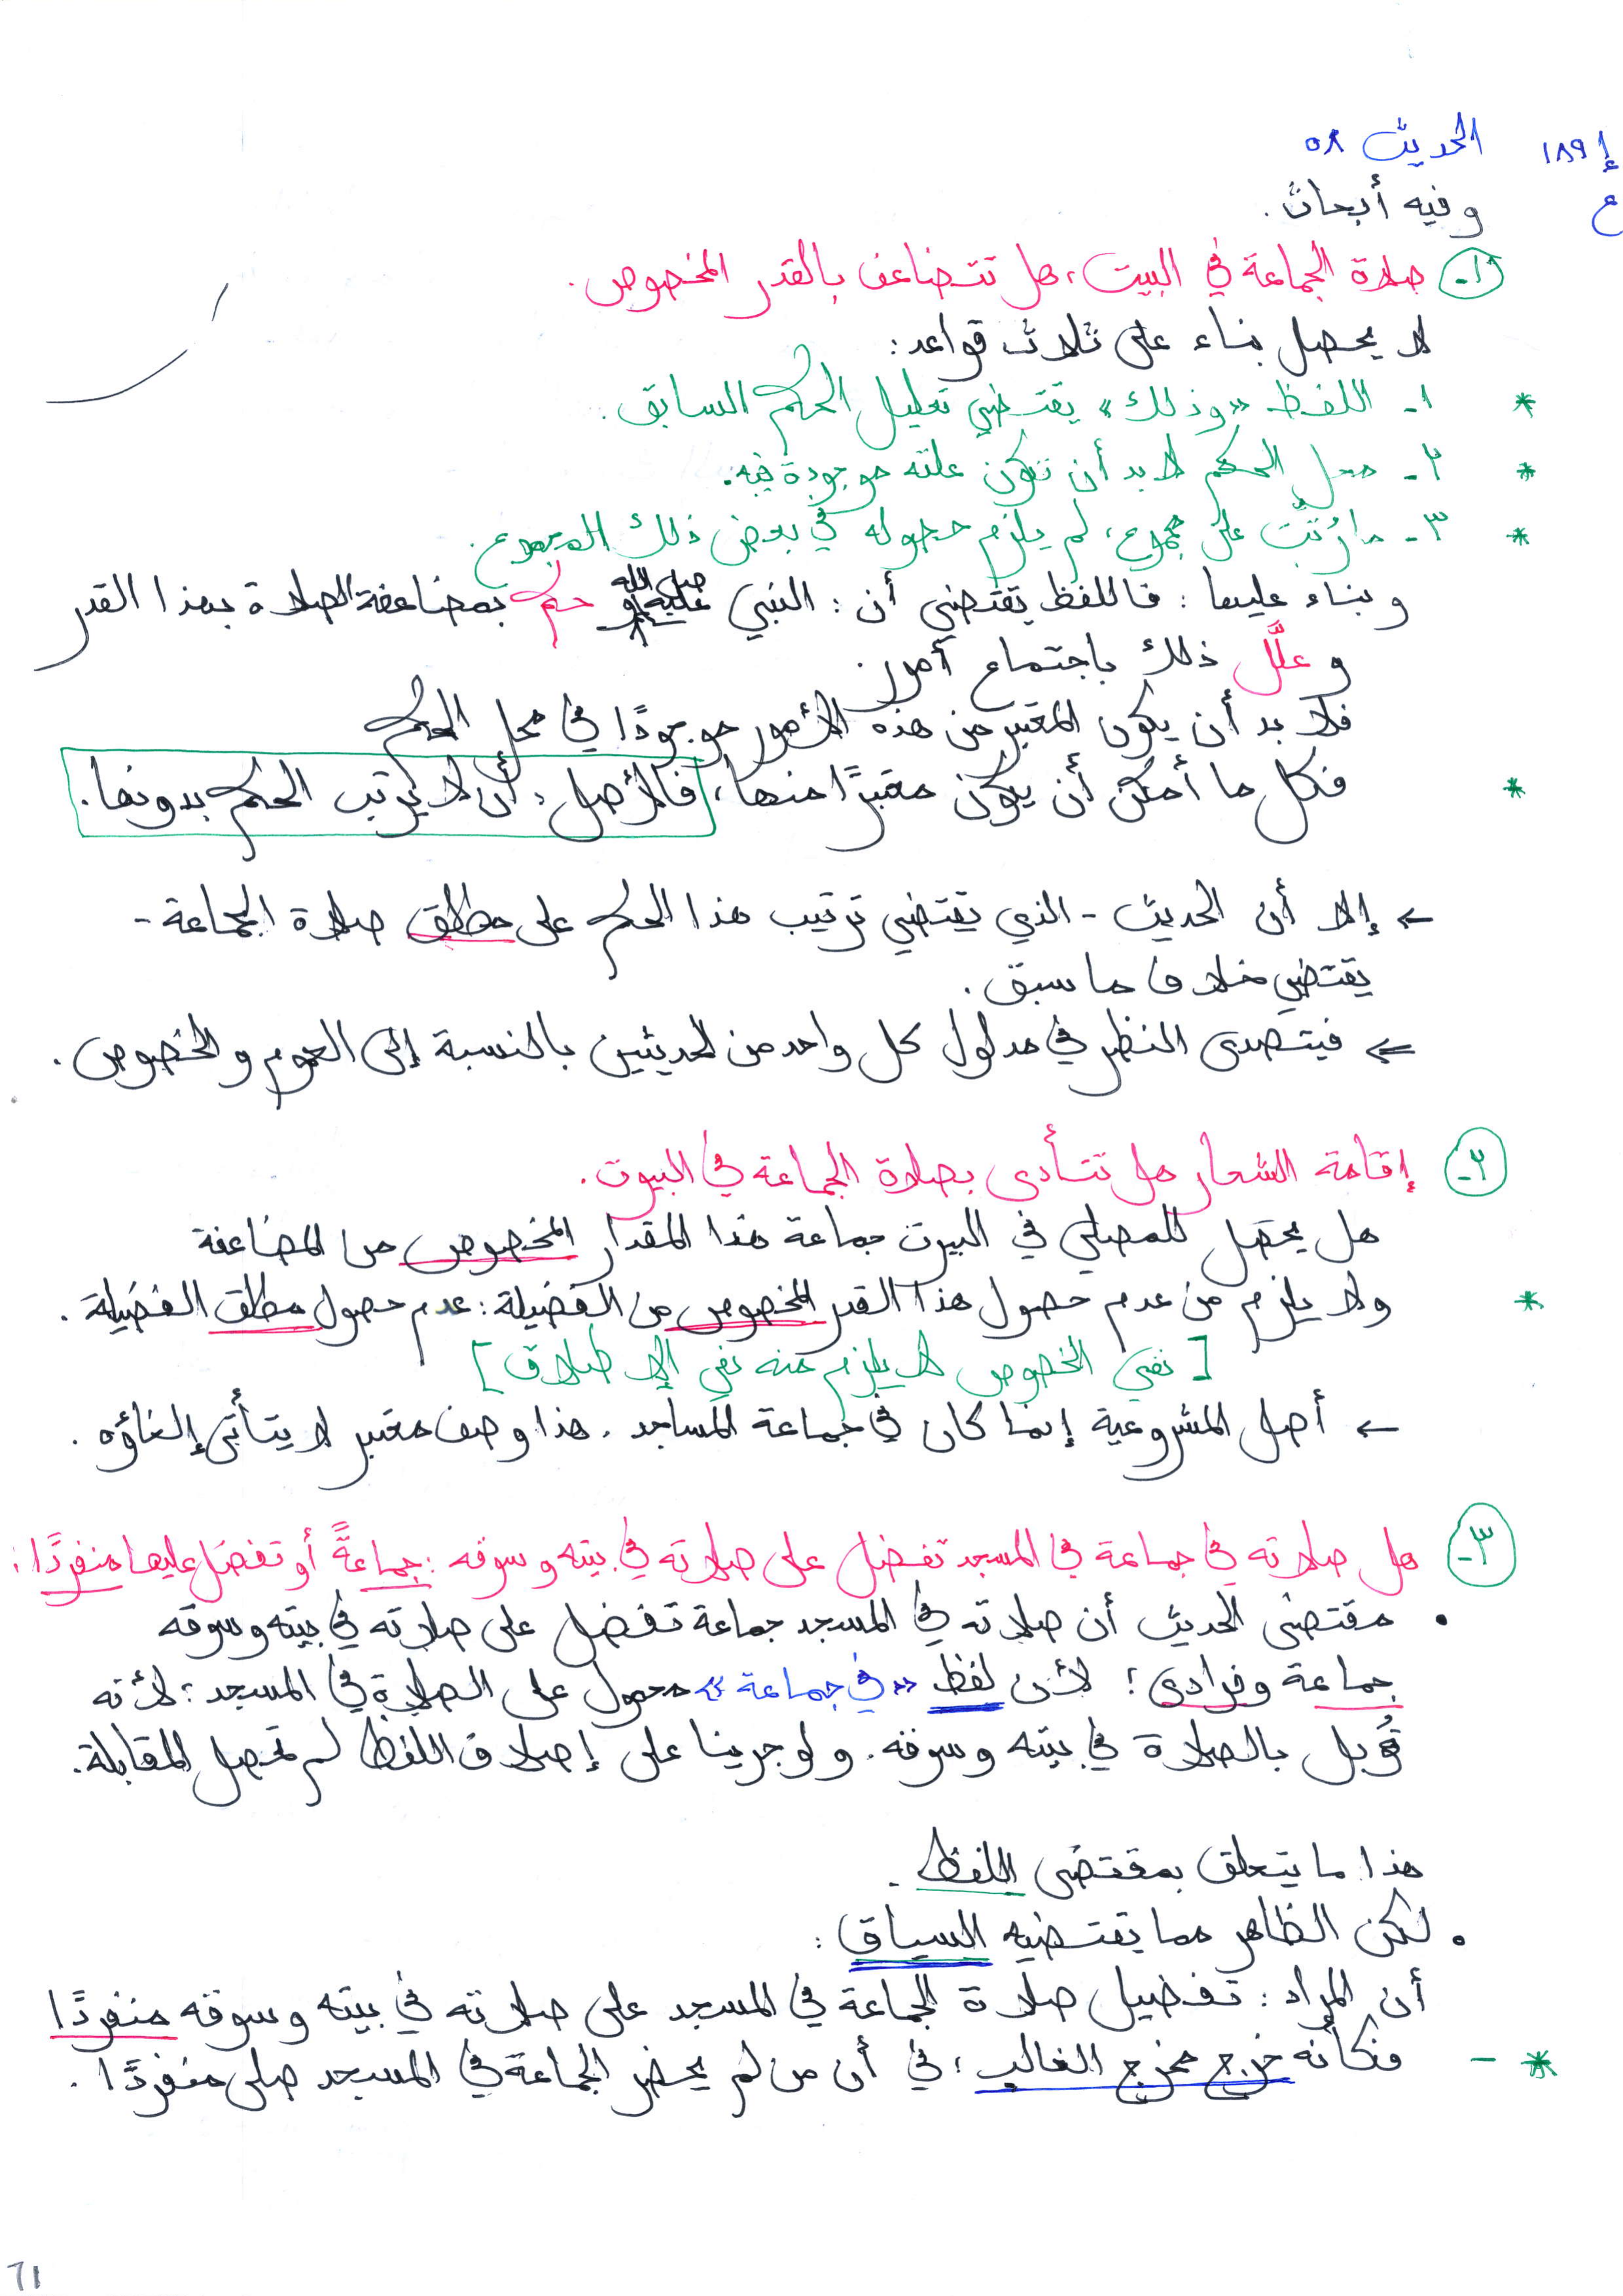 إ ١٨٩ الحديث ٥٨
ع وفيه أبحاث.
١- صلاة الجماعة في البيت، هل تتضاعف بالقدر المخصوص.
لا يحصل بناء على ثلاث قواعد:
* ١- اللفظ «وذلك» يقتضي تعليل الحكم السابق.
* ٢- محل الحكم لا بد أن تكون علته موجودة فيه.
* ٣- ما رُتِّبَ على مجموع، لم يلزم حصوله في بعض ذلك المجموع.
وبناء عليها: فاللفظ يقتضي أن: النبي صلى الله عليه وسلم حكم بمضاعفة الصلاة بهذا القدر
وعلَّل ذلك باجتماع أمور.
فلا بد أن يكون المعتبر من هذه الأمور موجودًا في محل الحكم
* فكل ما أمكن أن يكون معتبرًا منها، فالأصل: أن لا يترتب الحكم بدونها.
← إلا أن الحديث - الذي يقتضي ترتيب هذا الحكم على مطلق صلاة الجماعة -
يقتضي خلاف ما سبق.
⇐ فيتصدى النظر في مدلول كل واحد من الحديثين بالنسبة إلى العموم والخصوص.
٢- إقامة الشعار هل تتأدى بصلاة الجماعة في البيوت.
هل يحصل للمصلي في البيوت جماعة هذا المقدار المخصوص من المضاعفة
* ولا يلزم من عدم حصول هذا القدر المخصوص من الفضيلة: عدم حصول مطلق الفضيلة.
[نفي الخصوص لا يلزم منه نفي الإطلاق]
← أصل المشروعية إنما كان في جماعة المساجد. هذا وصف معتبر لا يتأتى إلغاؤه.
٣- هل صلاته في جماعة في المسجد تفضل على صلاته في بيته وسوقه: جماعةً أو تفضل عليها منفردًا:
• مقتضى الحديث أن صلاته في المسجد جماعة تفضل على صلاته في بيته وسوقه
جماعة وفرادى؛ لأن لفظ «في جماعة» محمول على الصلاة في المسجد؛ لأنه
قُوبل بالصلاة في بيته وسوقه. ولو جرينا على إطلاق اللفظ لم تحصل المقابلة.
هذا ما يتعلق بمقتضى اللفظ.
• لكن الظاهر مما يقتضيه السياق:
أن المراد: تفضيل صلاة الجماعة في المسجد على صلاته في بيته وسوقه منفردًا
* - فكأنه خرج مخرج الغالب؛ في أن من لم يحضر الجماعة في المسجد صلى منفردًا.